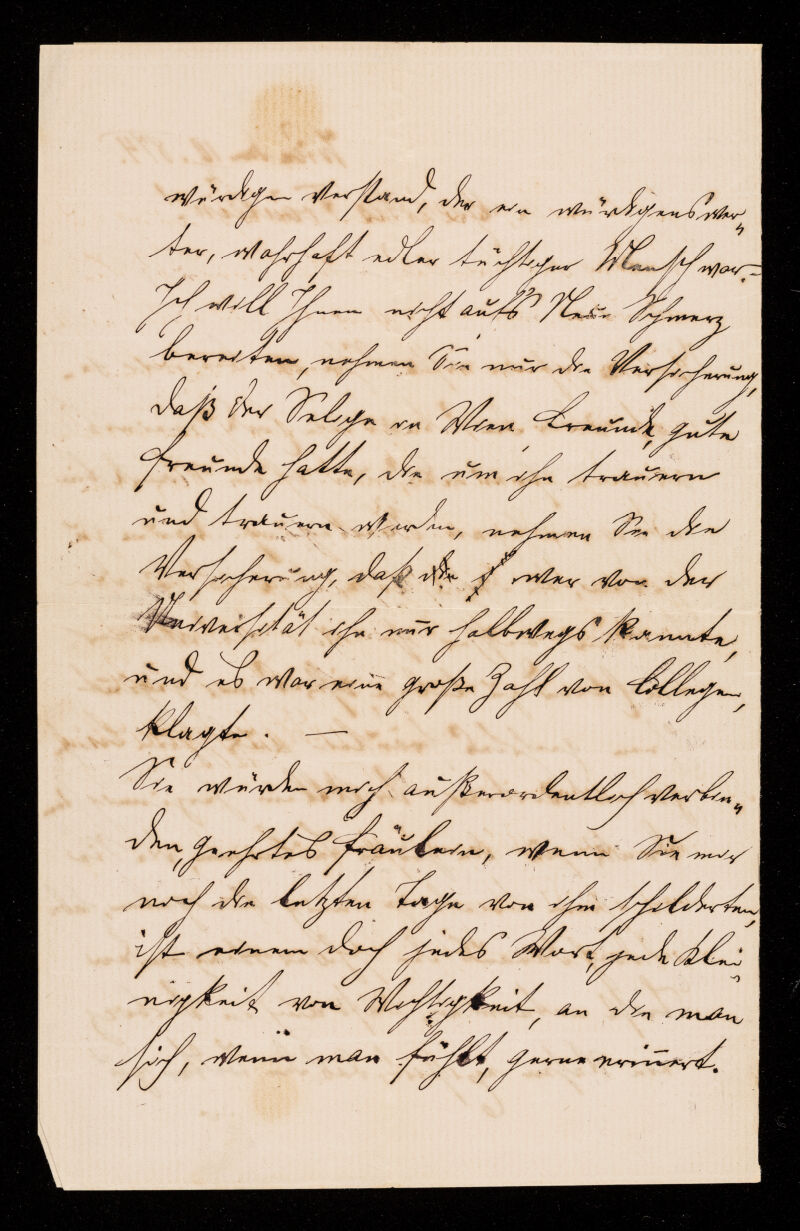 würdigen verstand, der ein würdigenswer„
ter, wahrhaft edler tüchtiger Mensch war.–
Ich will Ihnen nicht aufs Neue Schmerz
bereiten, nehmen Sie nur die Versicherung,
daß der Selige in Wien Freunde, gute
Freunde hatte, die um ihn trauern
und trauern werden, nehmen Sie die
Versicherung, daß wer von der
Universität ihn nur halbwegs kannte,
und es war eine große Zahl von Collegen,
klagte. —
Sie würden mich außerordentlich verbin„
den, geehrtes Fräulein, wenn Sie mir
noch die letzten Tage von ihm schilderten,
ist einem doch jedes Wort, jede Klei„
nigkeit von Wichtigkeit, an die man
sich, wenn man fühlt, gerne erinnert.